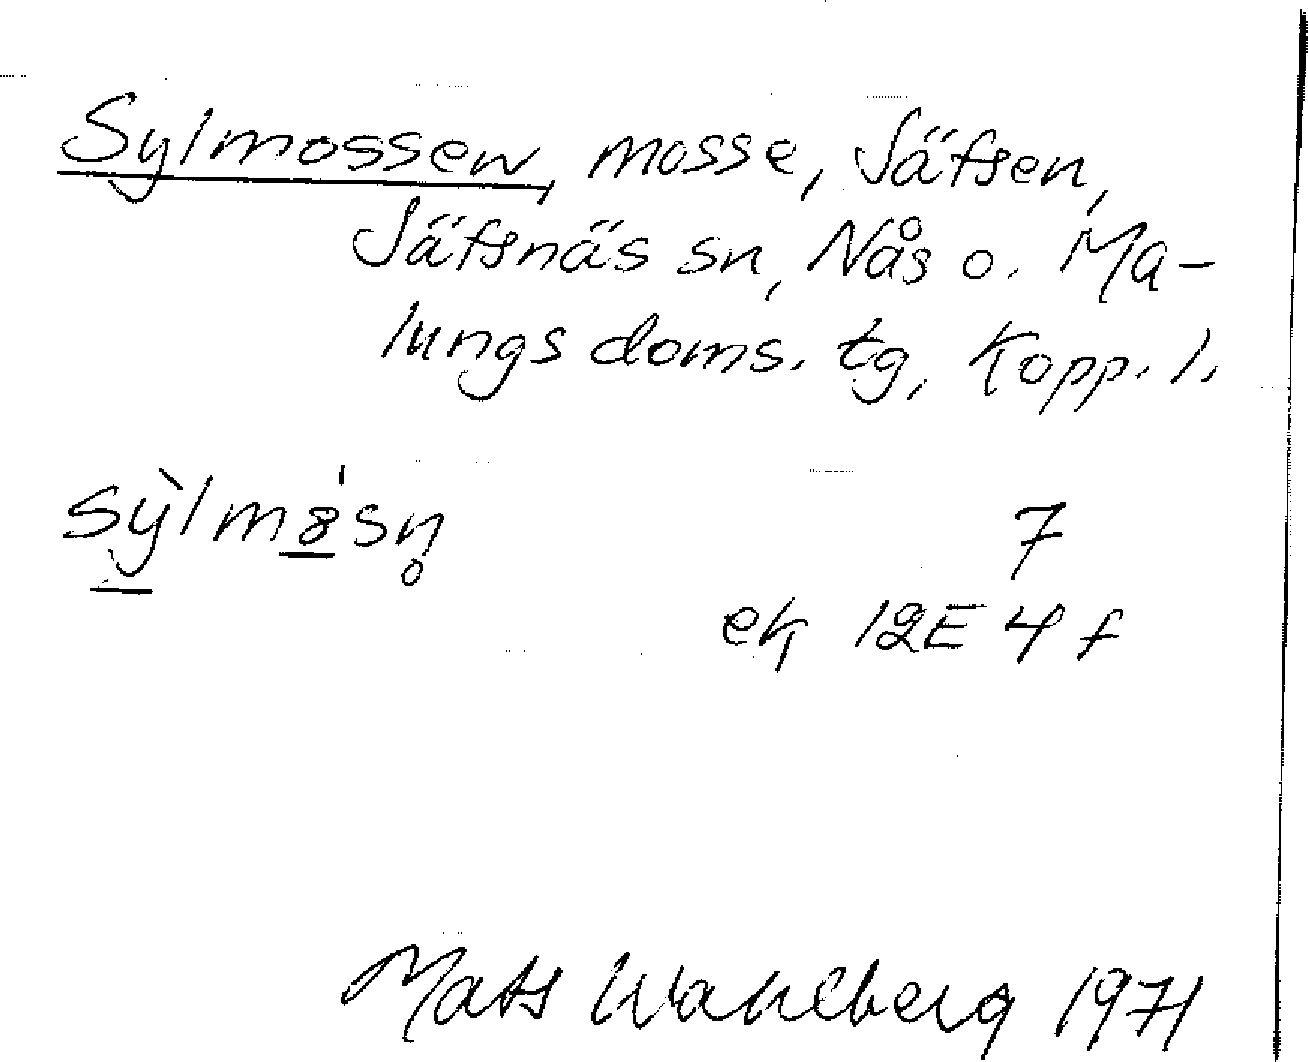 Sylmossen, mosse, Jäfsen,
Jäfsnäs sn, Nås o. Ma-
lungs doms. tg, Kopp. l.
7
ek 12E 4 f
Mats Wahlberg 1971